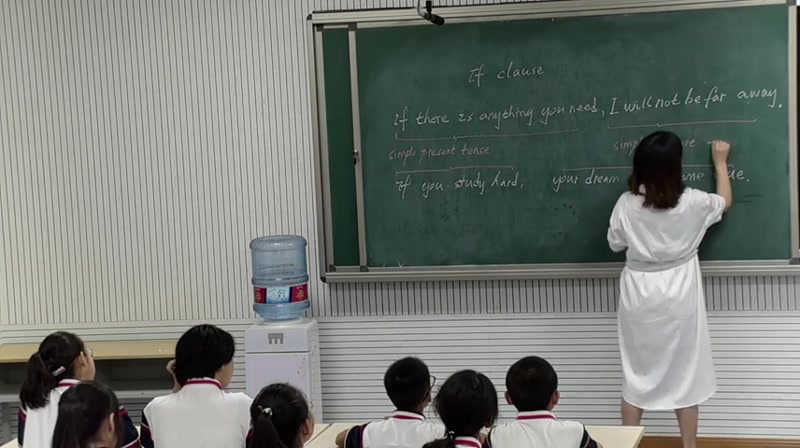 If clause
if there is anything you need, I will not be far away.
simple present tense
if you study hard, your dream